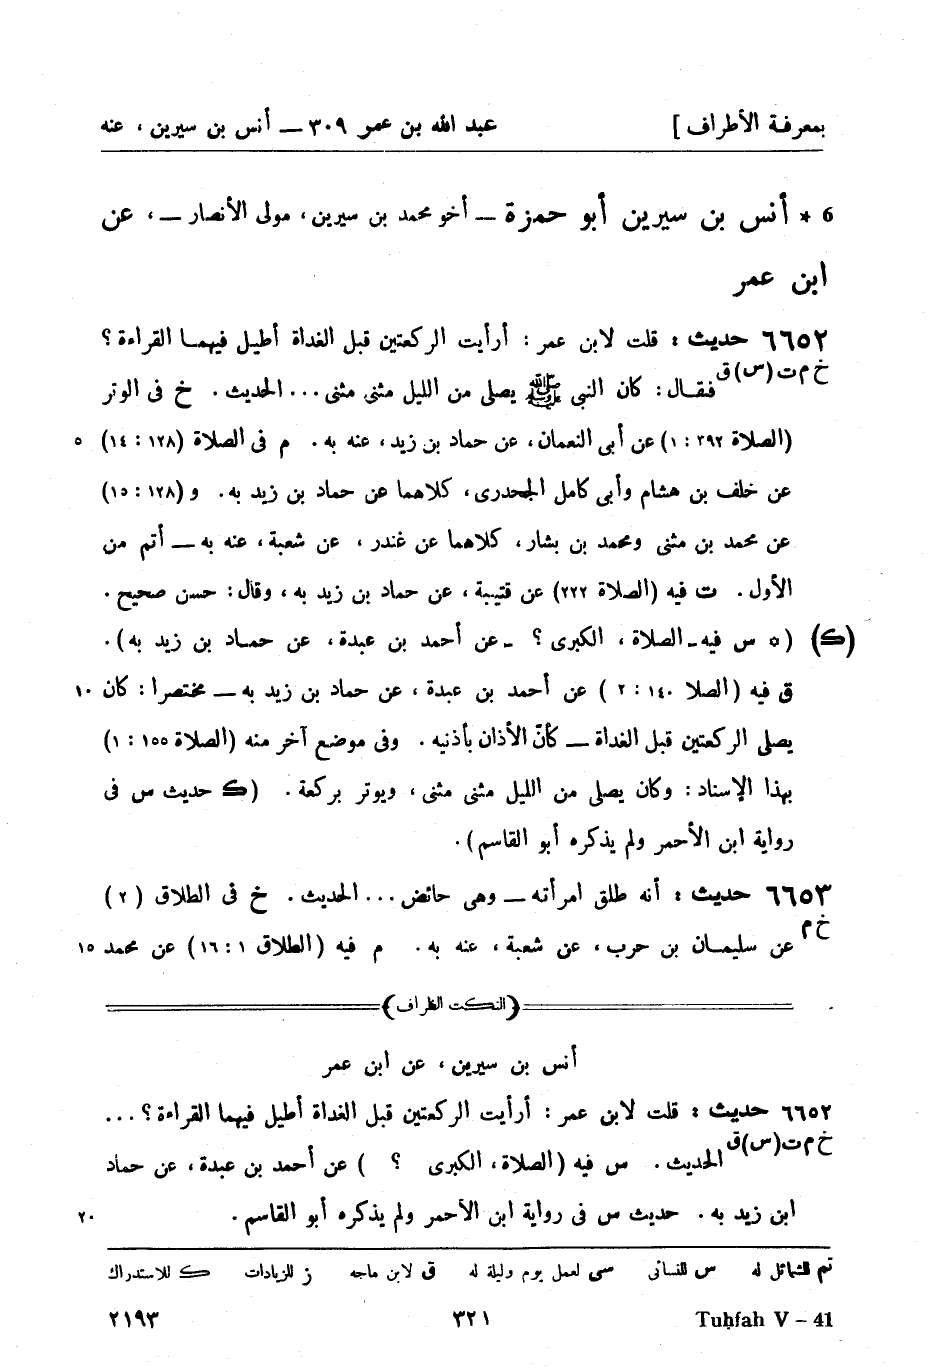 بمعرفة الأطراف ] عبد الله بن عمر ٣٠٩ — أنس بن سيرين ، عنه
6 * أنس بن سيرين أبو حمزة — أخو محمد بن سيرين، مولى الأنصار —، عن
ابن عمر
٦٦٥٢ حديث : قلت لابن عمر : أرأيت الركعتين قبل الغداة أطيل فيهما القراءة ؟
خ م ت (س) ق فقال : كان النبي ﷺ يصلى من الليل مثنى مثنى... الحديث . خ فى الوتر
(الصلاة ٣٩٢ : ١) عن أبى النعمان، عن حماد بن زيد، عنه به. م فى الصلاة (١٢٨ : ١٤) ٥
عن خلف بن هشام وأبى كامل الجحدرى، كلاهما عن حماد بن زيد به. و (١٢٨ : ١٥)
عن محمد بن مثنى ومحمد بن بشار، كلاهما عن غندر ، عن شعبة، عنه به — أتم من
الأول . ت فيه (الصلاة ٢٢٢) عن قتيبة ، عن حماد بن زيد به ، وقال : حسن صحيح .
(ك) (* س فيه - الصلاة ، الكبرى ؟ - عن أحمد بن عبدة، عن حماد بن زيد به).
ق فيه (الصلا ١٤٠ : ٢ ) عن أحمد بن عبدة ، عن حماد بن زيد به — مختصرا : كان ١٠
يصلى الركعتين قبل الغداة — كأنّ الأذان بأذنيه . وفى موضع آخر منه (الصلاة ١٥٥ : ١)
بهذا الإسناد : وكان يصلى من الليل مثنى مثنى ، ويوتر بركعة . (ك حديث س فى
رواية ابن الأحمر ولم يذكره أبو القاسم).
٦٦٥٣ حديث : أنه طلق امرأته — وهى حائض... الحديث . خ فى الطلاق (٢)
خ م عن سليمان بن حرب ، عن شعبة ، عنه به . م فيه (الطلاق ١ : ١٦) عن محمد ١٥
(النكت الظراف)
أنس بن سيرين ، عن ابن عمر
٦٦٥٢ حديث : قلت لابن عمر : أرأيت الركعتين قبل الغداة أطيل فيهما القراءة ؟...
خ م ت (س) ق الحديث . س فيه (الصلاة، الكبرى ؟ ) عن أحمد بن عبدة ، عن حماد
ابن زيد به . حديث س فى رواية ابن الأحمر ولم يذكره أبو القاسم . ٢٠
تم للشمائل له س للنسائى سى لعمل يوم وليلة له ق لابن ماجه ز للزيادات ك للاستدراك
Tuḥfah V – 41 ٣٢١ ٢١٩٣